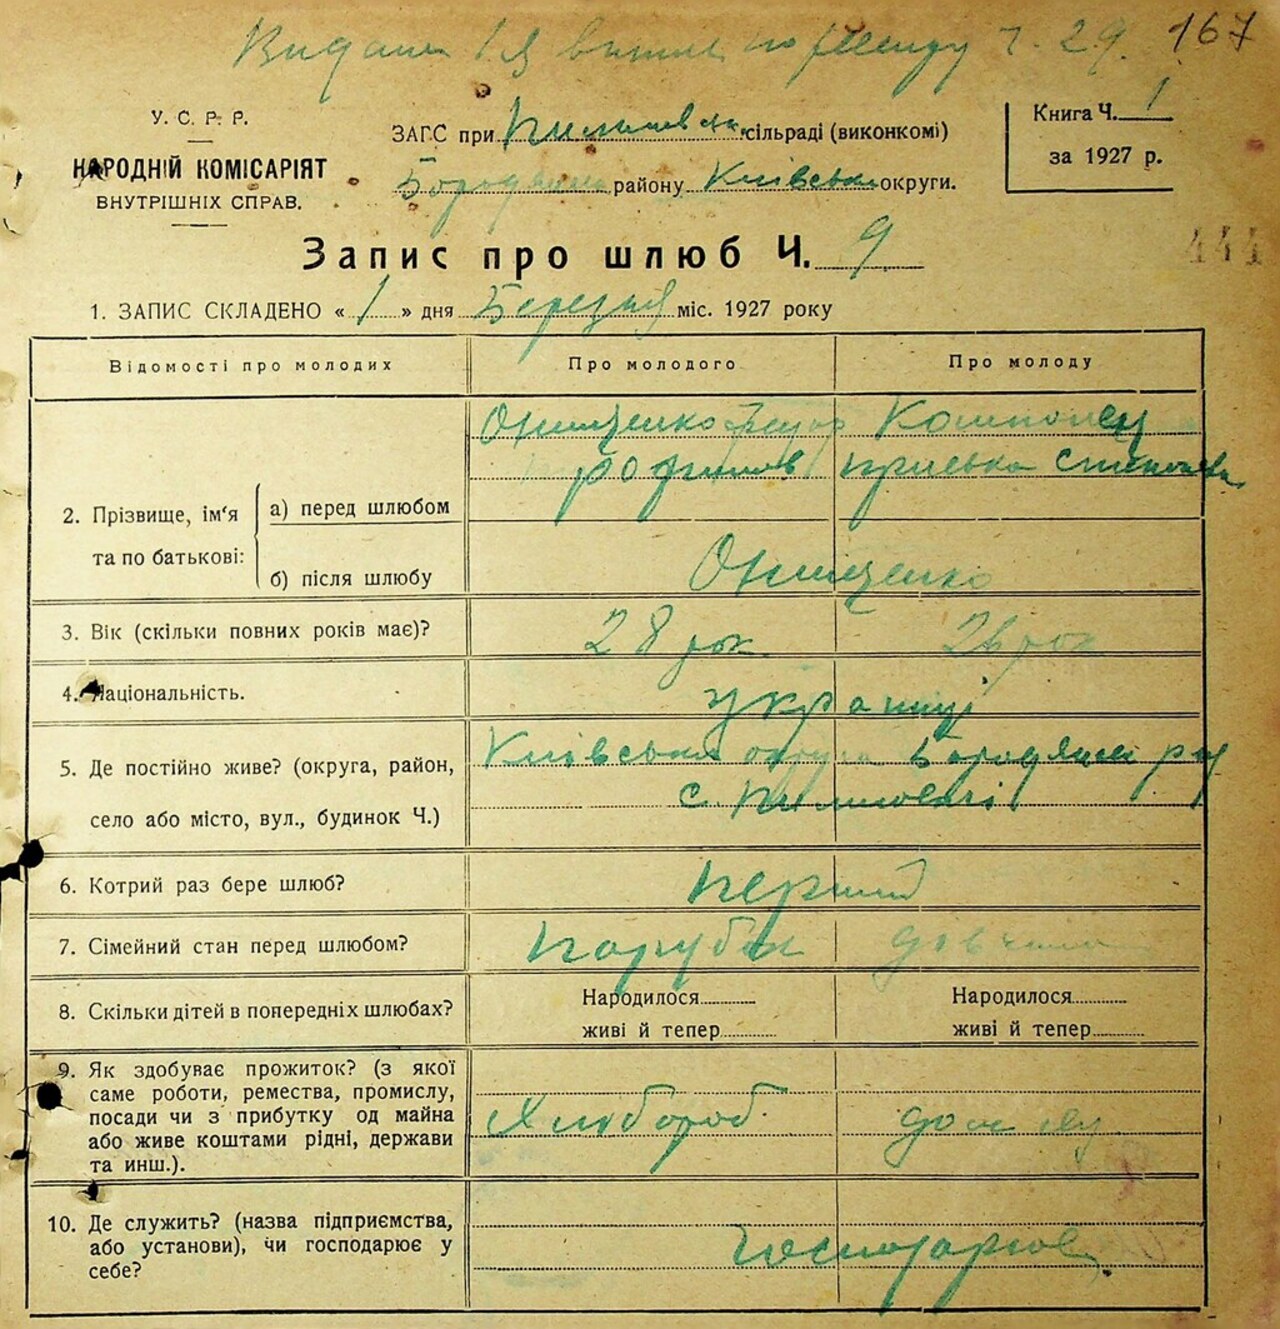 Видан 1я витяг по реєстру ч. 29. 167
У. С. Р. Р.
НАРОДНІЙ КОМІСАРІЯТ
ВНУТРІШНІХ СПРАВ.
ЗАГС при сільраді (виконкомі)
району Київська округи.
Книга Ч. 1
за 1927 р.
444
Запис про шлюб Ч. 9
1. ЗАПИС СКЛАДЕНО « 1 » дня Березня міс. 1927 року
Відомості про молодих Про молодого Про молоду
Онищенко Федор Компонец
приська
2. Прізвище, ім'я та по батькові:
а) перед шлюбом
б) після шлюбу Онищенко
3. Вік (скільки повних років має)? 28 рок 26 рок
4. Національність. українці
5. Де постійно живе? (округа, район, Київська округа Бородянський рай
село або місто, вул., будинок Ч.) с. Пилиповичі
6. Котрий раз бере шлюб? перший
7. Сімейний стан перед шлюбом? парубок дівчина
8. Скільки дітей в попередніх шлюбах? Народилося Народилося
живі й тепер живі й тепер
9. Як здобуває прожиток? (з якої
саме роботи, ремества, промислу,
посади чи з прибутку од майна Хлибороб
або живе коштами рідні, держави
та инш.).
10. Де служить? (назва підприємства,
або установи), чи господарює у
себе?